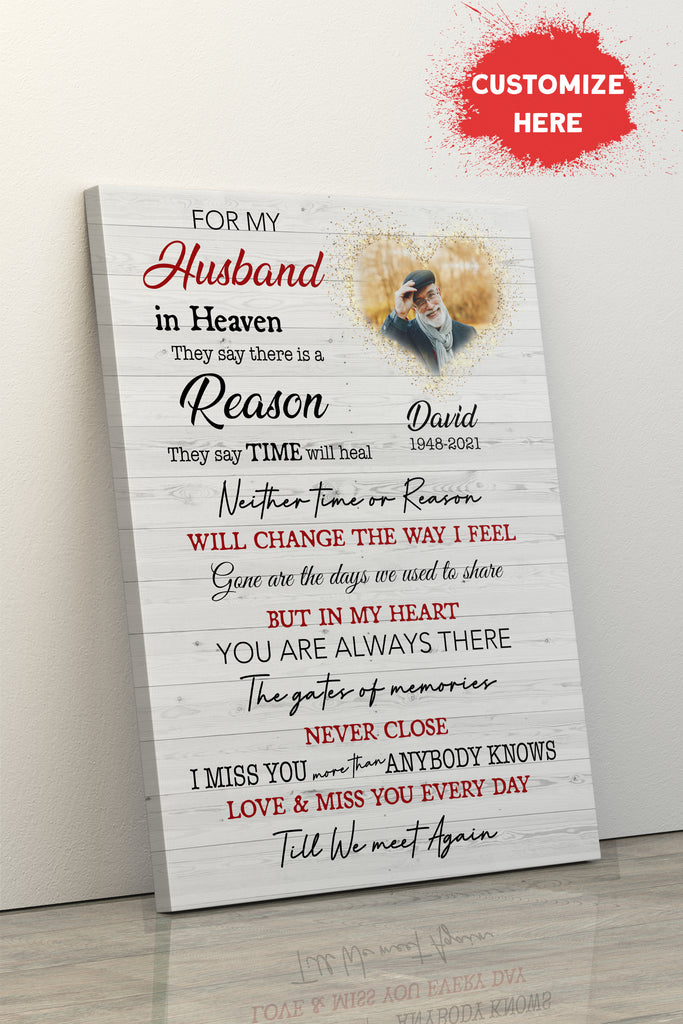 CUSTOMIZE
HERE
FOR MY
Husband
in Heaven
They say there is a
Reason
They say TIME will heal
David
1948-2021
Neither time or Reason
WILL CHANGE THE WAY I FEEL
Gone are the days we used to share
BUT IN MY HEART
YOU ARE ALWAYS THERE
The gates of memories
NEVER CLOSE
I MISS YOU more than ANYBODY KNOWS
LOVE & MISS YOU EVERY DAY
Till We meet Again
Till We meet Again
LOVE & MISS YOU EVERY DAY
ANYBODY KNOWS